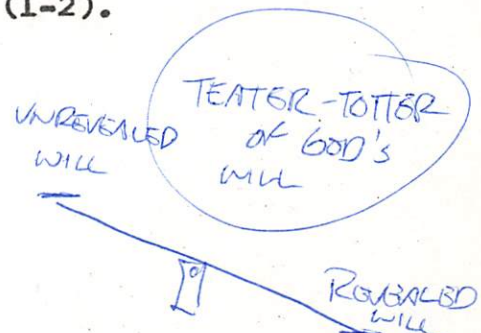 (1-2).
TEATER-TOTTER
OF GOD'S
WILL
UNREVEALED
WILL
REVEALED
WILL